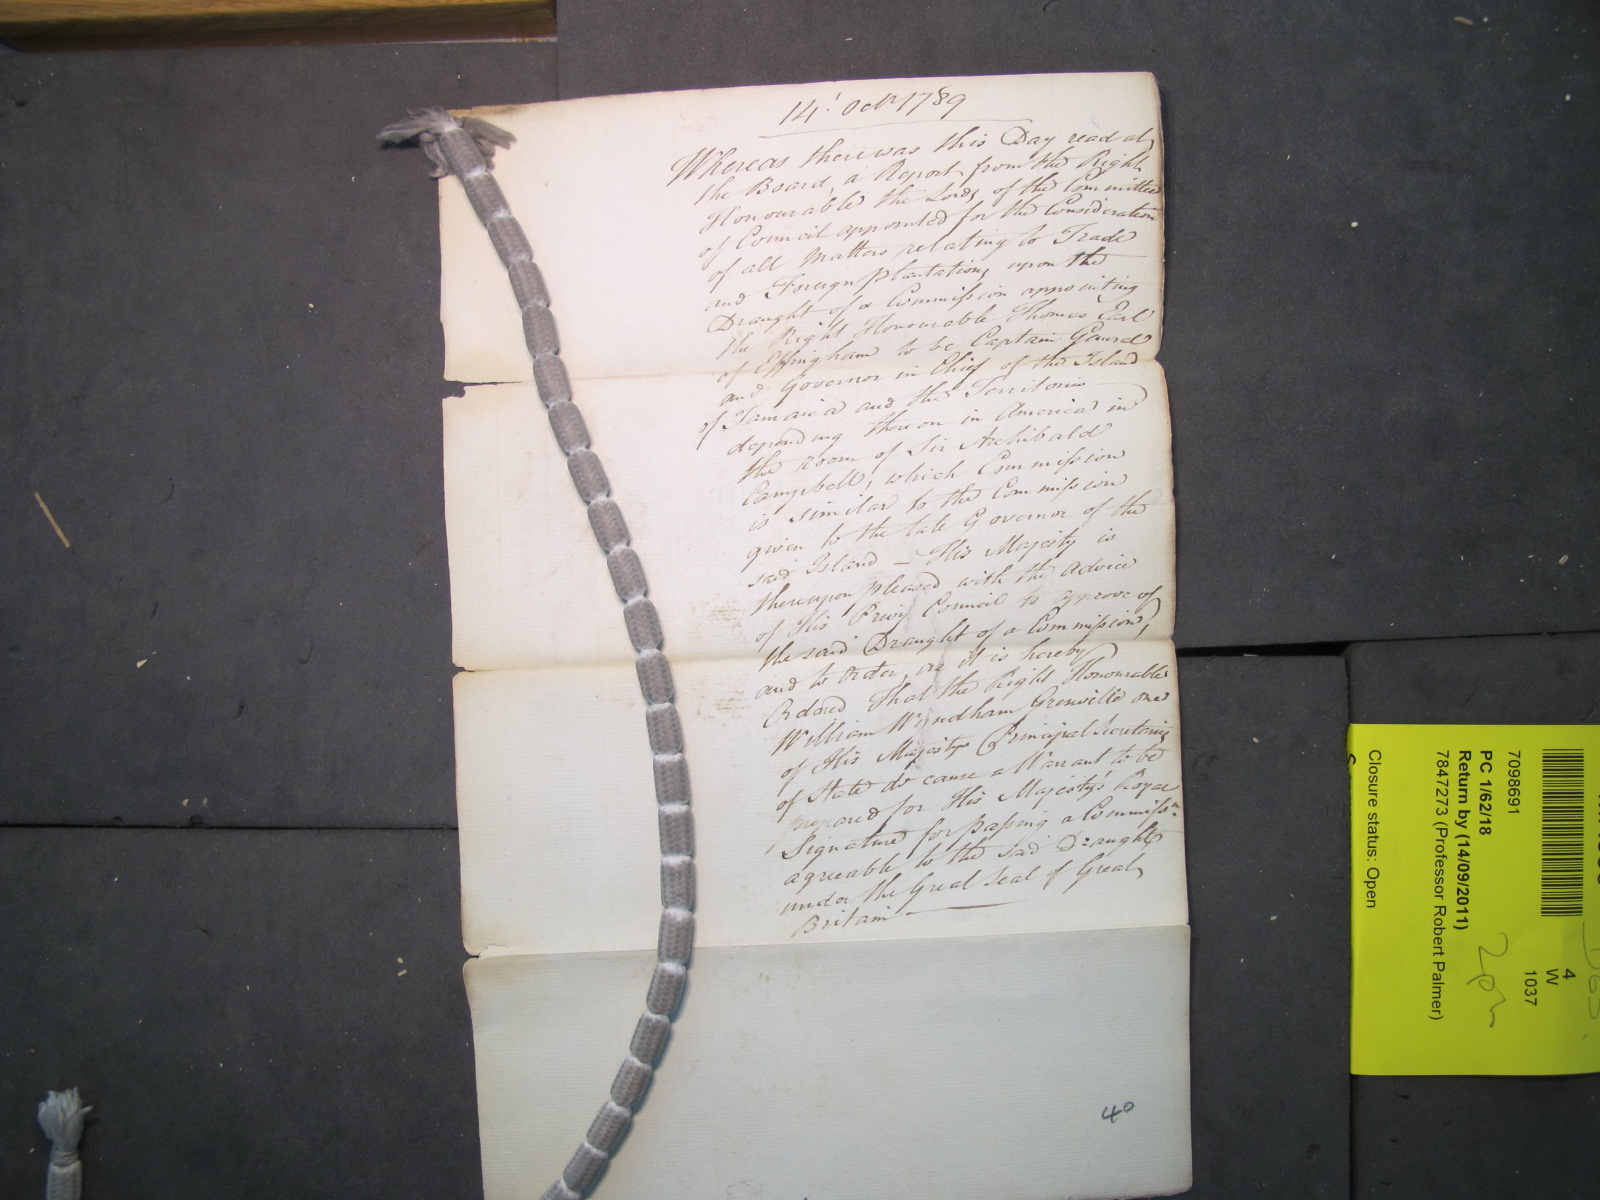 14' Octr 1789
Whereas there was this Day read at
the Board, a Report from the Right
Honourable the Lords of the Committee
of Council appointed for the Consideration
of all Matters relating to Trade
and Foreign plantations, upon the
Draught of a Commission appointing
the Right Honourable Thomas Earl
of Effingham to be Captain General
and Governor in Chief of the Island
of Jamaica and the Territories
depending thereon in America in
the room of Sir Archibald
Campbell, which Commission
is similar to the Commission
given to the late Governor of the
said Island – His Majesty is
thereupon pleased with the Advice
of His Privy Council to approve of
the said Draught of a Commission,
and to Order, as it is hereby
Ordered That the Right Honourable
William Wyndham Grenville one
of His Majestys Principal Secretarys
of State do cause a Warrant to be
prepared for His Majesty's Royal
Signature for passing a Commissn.
agreeable to the said Draught
under the Great Seal of Great
Britain
40
7098691
PC 1/62/18
Return by (14/09/2011)
7847273 (Professor Robert Palmer)
Closure status: Open
4
W
1037